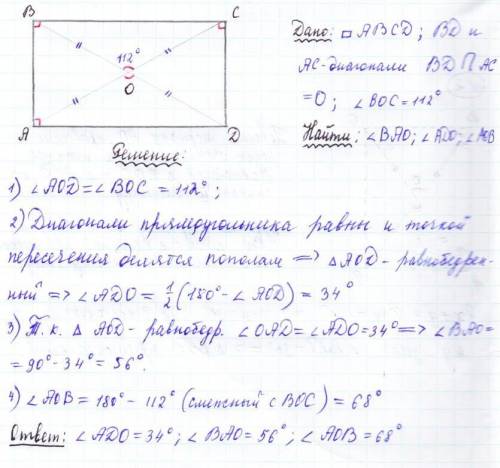 B C
112°
O
A D
Дано: □ ABCD; BD и
AC-диагонали BD ∩ AC
=O; ∠BOC=112°
Найти: ∠BAO; ∠ADO; ∠AOB
Решение:
1) ∠AOD=∠BOC = 112°;
2) Диагонали прямоугольника равны и точкой
пересечения делятся пополам => △AOD - равнобедрен-
ный => ∠ADO = 1/2(180° - ∠AOD) = 34°
3) Т.к. △ AOD - равнобедр. ∠OAD=∠ADO=34° => ∠BAO=
= 90° - 34° = 56°.
4) ∠AOB = 180° - 112° (смежный с BOC) = 68°
Ответ: ∠ADO=34°; ∠BAO=56°; ∠AOB=68°